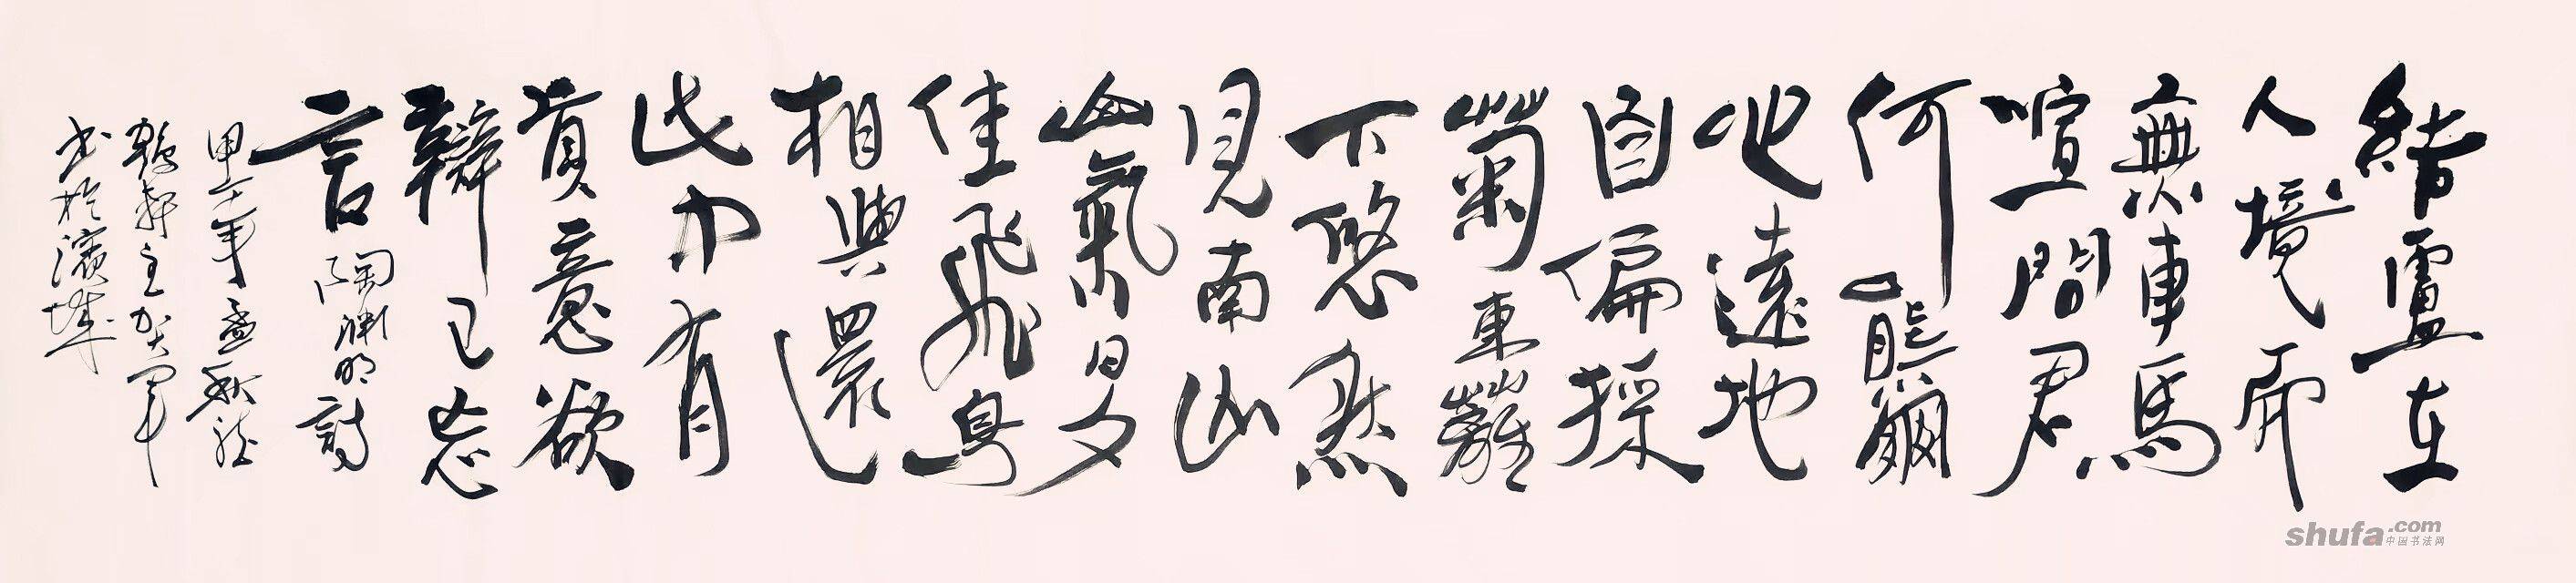 結盧在
人境而
無車馬
喧問君
何能爾
心遠地
自偏採
菊東籬
下悠然
見南山
山氣日夕
佳飛鳥
相與還
此中有
真意欲
辯已忘
言 陶淵明詩
甲午年孟秋
軒主賀軍
書於濱城
shufa.com
中国书法网